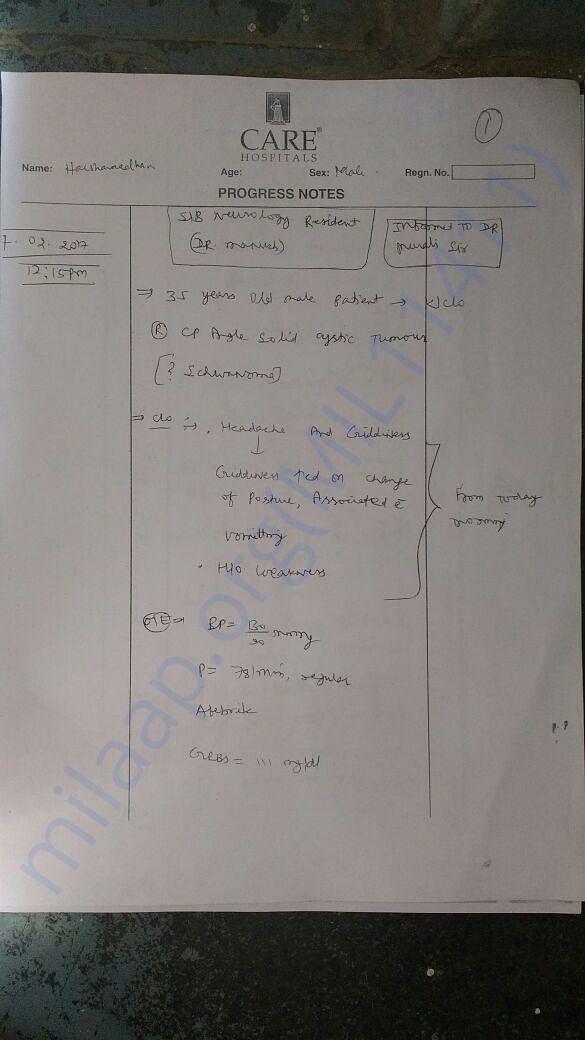 1
CARE
HOSPITALS
Name: Age: Sex: Male. Regn. No.
PROGRESS NOTES
7.02.2017
12:15pm
S/B Neurology Resident
(DR. )
Informed to DR
Sir
⇒ 35 years old male patient → K/c/o
Ⓡ CP Angle Solid cystic Tumour
[? Schwannoma]
⇒ c/o :→ . Headache And Giddiness
↓
Giddiness ↑ed on change
of Posture, Associated c̄
vomitting
• H/o weakness
From today
morning
O/E ⇒ BP = 130/90 mmHg
P = 78/min, regular
Afebrile
GRBS = 111 mg/dl
milaap.org(MIL11411)